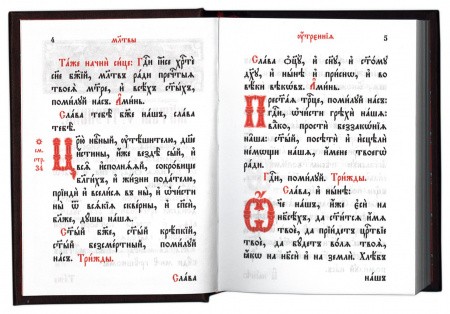 4 Мл҃твы
Та́же начнѝ сице: Гдⷭ҇и і҆и҃се хрⷭ҇тѐ
сн҃е бж҃їй, мл҃твъ ра́ди пречⷭ҇тыѧ
твоеѧ̀ мт҃ре, и҆ всѣ́хъ ст҃ы́хъ,
поми́лꙋй на́съ. А҆ми́нь.
Сла́ва тебѣ̀ бж҃е на́шъ, сла́ва
тебѣ̀.
Цр҃ю̀ нбⷭ҇ный, ᲂу҆тѣ́шителю, дш҃е
и҆́стины, и҆́же вездѣ̀ сы́й, и҆
всѧ̑ и҆сполнѧ́ѧй, сокро́вище
бл҃ги́хъ, и҆ жи́зни пода́телю,
прїидѝ и҆ всели́сѧ въ ны̀, и҆ ѡ҆чи́сти
ны̀ ѿ всѧ́кїѧ скве́рны, и҆ сп҃сѝ,
бл҃же, дꙋ́шы на́шѧ.
Ст҃ы́й бж҃е, ст҃ы́й крѣ́пкїй,
ст҃ы́й безсме́ртный, поми́лꙋй
на́съ. Три́жды.
Сла́ва
Ѻ҆
і҆м.
стр.
31
ᲂу҆́трєннїѧ 5
Сла́ва ѻ҆ц҃ꙋ̀, и҆ сн҃ꙋ, и҆ ст҃о́мꙋ
дх҃ꙋ, и҆ ны́нѣ и҆ при́снѡ, и҆ во
вѣ́ки вѣкѡ́въ. А҆ми́нь.
Прест҃а́ѧ трⷪ҇це, поми́лꙋй на́съ:
гдⷭ҇и, ѡ҆чи́сти грѣхѝ на́шѧ:
влⷣко, простѝ беззакѡ́нїѧ
на́ша: ст҃ы́й, посѣтѝ и҆ и҆сцѣлѝ
не́мѡщи на́шѧ, и҆́мене твоегѡ̀
ра́ди.
Гдⷭ҇и, поми́лꙋй. Три́жды.
Сла́ва, и҆ ны́нѣ:
Ѻ҆́ч҃е на́шъ, и҆́же є҆сѝ на
нб҃сѣ́хъ, да ст҃и́тсѧ и҆́мѧ
твоѐ, да прїи́детъ црⷭ҇твїе
твоѐ, да бꙋ́детъ во́лѧ твоѧ̀,
ꙗ҆́кѡ на нб҃сѝ и҆ на землѝ. Хлѣ́бъ
на́шъ